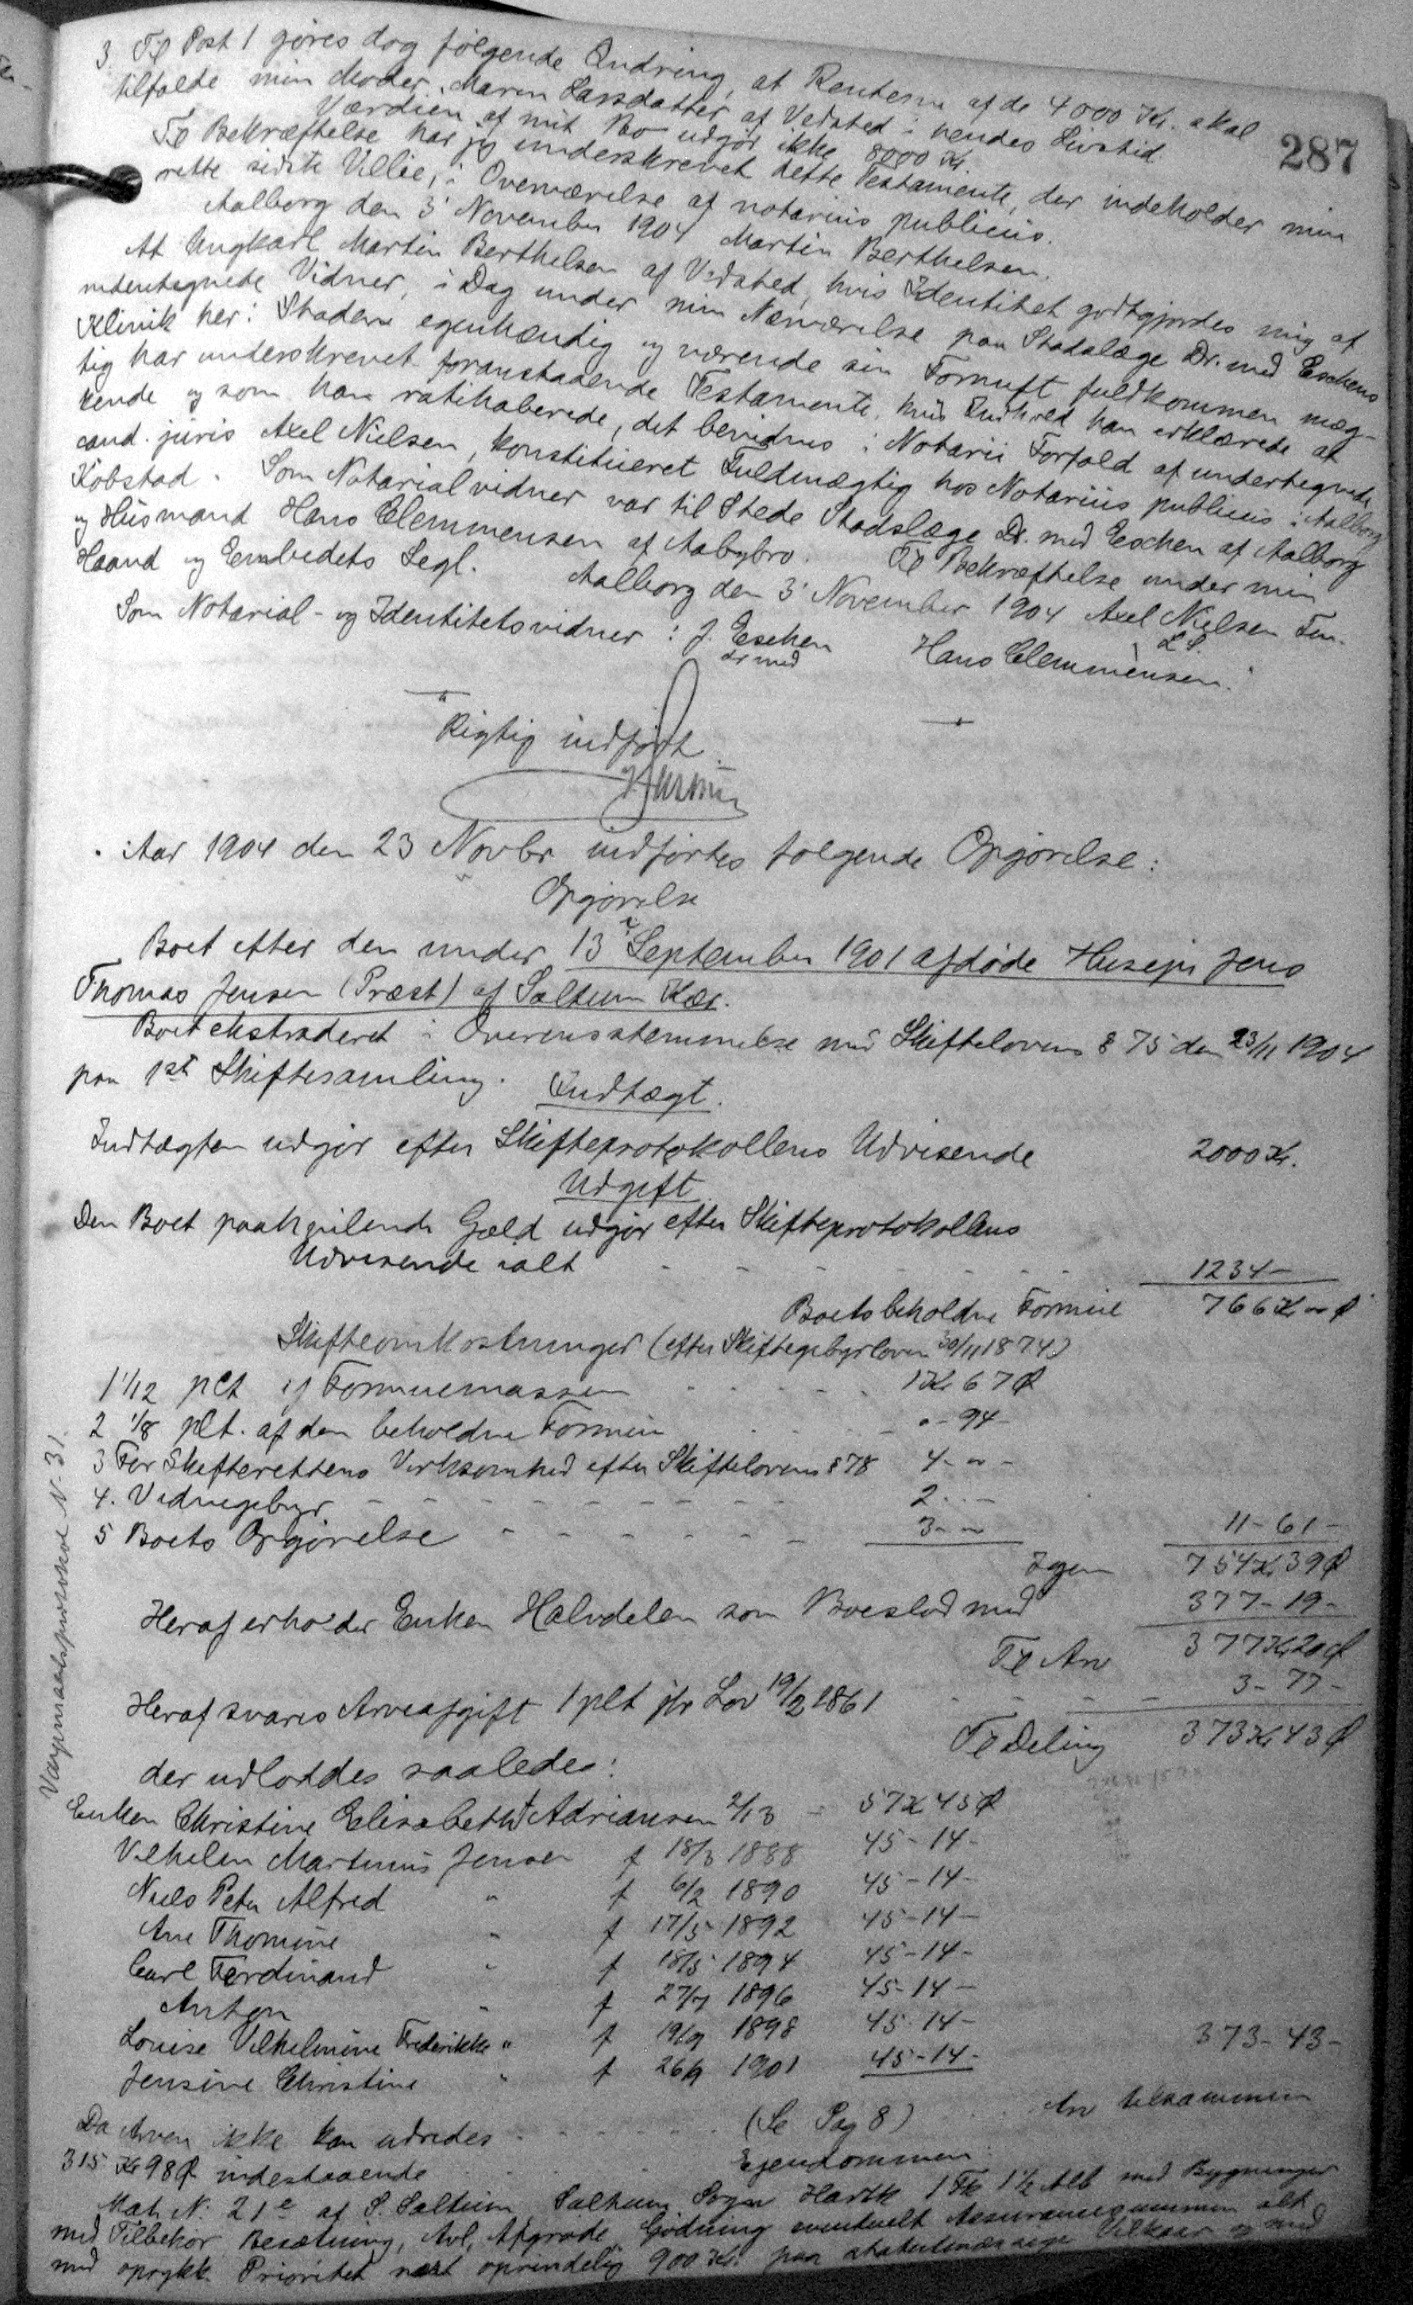 287
3 Til Post 1 gøres dog følgende Ændring, at Renterne af de 4000 Kr. skal
tilfalde min Moder, Maren Larsdatter af Vedsted i hendes Livstid.
Værdien af mit Bo udgør ikke 8000 Kr
Til Bekræftelse har jeg underskrevet dette Testamente, der indeholder min
rette sidste Villie, i Overværelse af notarius publicus.
Aalborg den 3' November 1904 Martin Berthelsen.
At Ungkarl Martin Berthelsen af Vedsted, hvis Identitet godtgjordes mig af
undertegnede Vidner, i Dag under min Nærværelse paa Stadslæge Dr. med Eschens
Klinik her i Staden egenhændig og værende sin Fornuft fuldkommen mæg-
tig har underskrevet foranstaaende Testamente, hvis Indhold han erklærede at
kende og som han ratihaberede, det bevidnes i Notarii Forfald af undertegnede
cand. juris Axel Nielsen, konstitueret Fuldmægtig hos Notarius publicus i Aalborg
Købstad. Som Notarialvidner var til Stede Stadslæge Dr. med Eschen af Aalborg
og Husmand Hans Clemmensen af Aabybro. Til Bekræftelse under min
Haand og Embedets Segl. Aalborg den 3' November 1904 Axel Nielsen Fm.
L.S.
Som Notarial- og Identitetsvidner: J. Eschen Hans Clemmensen.
dr med
Rigtig indført
Aar 1904 den 23 Novbr indførtes følgende Opgørelse:
Opgørelse
i
Boet efter den under 13' September 1901 afdøde Husejer Jens
Thomas Jensen (Præst) af Saltum Kær.
Boet ekstraderet i Overensstemmelse med Skiftelovens § 75 den 23/11 1904
paa 1ste Skiftesamling.
Indtægt.
Indtægten udgør efter Skifteprotokollens Udvisende 2000 Kr.
Udgift
Den Boet paahvilende Gæld udgør efter Skifteprotokollens
Udvisende ialt - - - - - 1234 -
Boets beholdne Formue 766 Kr " Ø
Skifteomkostninger (efter Skiftegebyrloven 30/11 1874)
1 1/12 pCt af Formuemassen - - - - 1 Kr 67 Ø
2 1/8 pCt. af den beholdne Formue - - - " - 94 -
3 For Skifterettens Virksomhed efter Skiftelovens § 78 4 - " -
4. Vidnegebyr - - - - - - - 2 - " -
5 Boets Opgørelse - - - - - - 3 - " 11 - 61 -
Igen 754 Kr 39 Ø
Heraf erholder Enken Halvdelen som Boeslod med 377 - 19 -
Til Arv 377 Kr 20 Ø
Heraf svares Arveafgift 1 pCt jfr Lov 19/2 1861 - - - 3 - 77 -
Til Deling 373 Kr 43 Ø
der udloddes saaledes:
Enken Christine Elisabeth Adriansen 2/13 - 57 Kr 45 Ø
Vilhelm Martinus Jensen f 18/3 1888 45 - 14 -
Niels Peter Alfred " f 6/2 1890 45 - 14 -
Ane Thomine " f 17/5 1892 45 - 14 -
Carl Ferdinand " f 18/5 1894 45 - 14 -
Anton " f 27/7 1896 45 - 14 -
Louise Vilhelmine Frederikke " f 19/9 1898 45 - 14 -
Jensine Christine " f 26/9 1901 45 - 14 - 373 - 43 -
Da Arven ikke kan udredes - - - - (Se Pag 8) Arv tilsammen
315 Kr 98 Ø indestaaende Ejendommen
Matr N. 21e af S. Saltum Saltum Sogn Hartk 1 Fk 1½ Alb med Bygninger
med Tilbehør Besætning, Avl, Afgrøde Gødning eventuelt Assurancesummen alt
med oprykk. Prioritet næst oprindelig 900 Kr. paa statutmæssige Vilkaar og med
Værgemaalsprotokol N. 31.